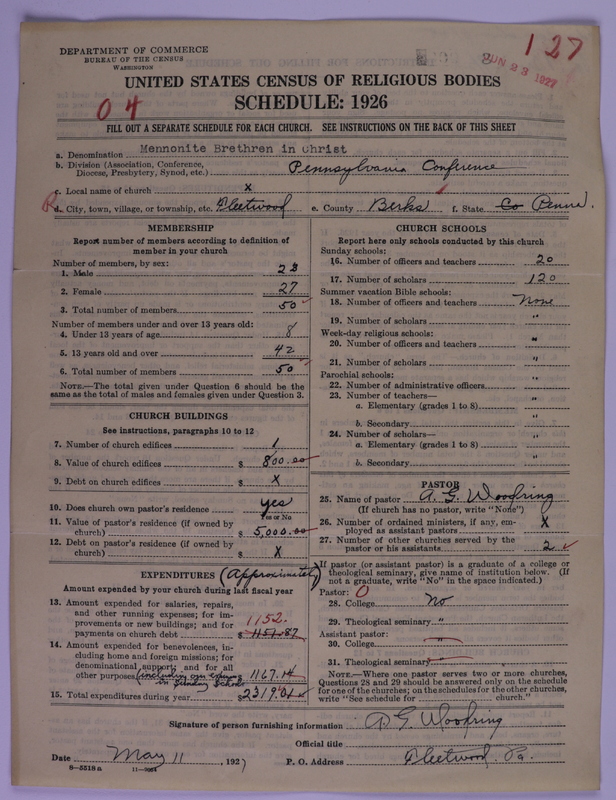 127
DEPARTMENT OF COMMERCE
BUREAU OF THE CENSUS
WASHINGTON
JUN 23 1927
UNITED STATES CENSUS OF RELIGIOUS BODIES
SCHEDULE: 1926
04
FILL OUT A SEPARATE SCHEDULE FOR EACH CHURCH. SEE INSTRUCTIONS ON THE BACK OF THIS SHEET
a. Denomination Mennonite Brethren in Christ
b. Division (Association, Conference, Diocese, Presbytery, Synod, etc.) Pennsylvania Conference
c. Local name of church x
d. City, town, village, or township, etc. Fleetwood e. County Berks f. State Co Penna.
MEMBERSHIP
Report number of members according to definition of
member in your church
Number of members, by sex:
1. Male 23
2. Female 27
3. Total number of members 50
Number of members under and over 13 years old:
4. Under 13 years of age 8
5. 13 years old and over 42
6. Total number of members 50
NOTE.—The total given under Question 6 should be
same as the total of males and females given under Question 3.
CHURCH BUILDINGS
See instructions, paragraphs 10 to 12
7. Number of church edifices 1
8. Value of church edifices $ 800.00
9. Debt on church edifices $ X
10. Does church own pastor's residence yes
Yes or No
11. Value of pastor's residence (if owned by
church) $ 5,000.00
12. Debt on pastor's residence (if owned by
church) $ X
EXPENDITURES (approximately)
Amount expended by your church during last fiscal year
13. Amount expended for salaries, repairs,
and other running expenses; for im-
provements or new buildings; and for
payments on church debt $ 1151.87
1152.
14. Amount expended for benevolences, in-
cluding home and foreign missions; for
denominational support; and for all
other purposes (including our expenses in Sunday School 1167.14
15. Total expenditures during year $ 2319.01
CHURCH SCHOOLS
Report here only schools conducted by this church
Sunday schools:
16. Number of officers and teachers 20
17. Number of scholars 120
Summer vacation Bible schools:
18. Number of officers and teachers None
19. Number of scholars "
Week-day religious schools:
20. Number of officers and teachers "
21. Number of scholars "
Parochial schools:
22. Number of administrative officers "
23. Number of teachers—
a. Elementary (grades 1 to 8) "
b. Secondary "
24. Number of scholars—
a. Elementary (grades 1 to 8) "
b. Secondary "
PASTOR
25. Name of pastor A. G. Woodring
(If church has no pastor, write "None")
26. Number of ordained ministers, if any, em-
ployed as assistant pastors X
27. Number of other churches served by the
pastor or his assistants 2
If pastor (or assistant pastor) is a graduate of a college or
theological seminary, give name of institution below. (If
not a graduate, write "No" in the space indicated.)
Pastor: O
28. College No
29. Theological seminary "
Assistant pastor:
30. College
31. Theological seminary
NOTE.—Where one pastor serves two or more churches,
Questions 28 and 29 should be answered only on the schedule
for one of the churches; on the schedules for the other churches,
write "See schedule for church."
Signature of person furnishing information A. G. Woodring
Official title
Date May 11, 1927 P. O. Address Fleetwood, Pa.
8—5518 a